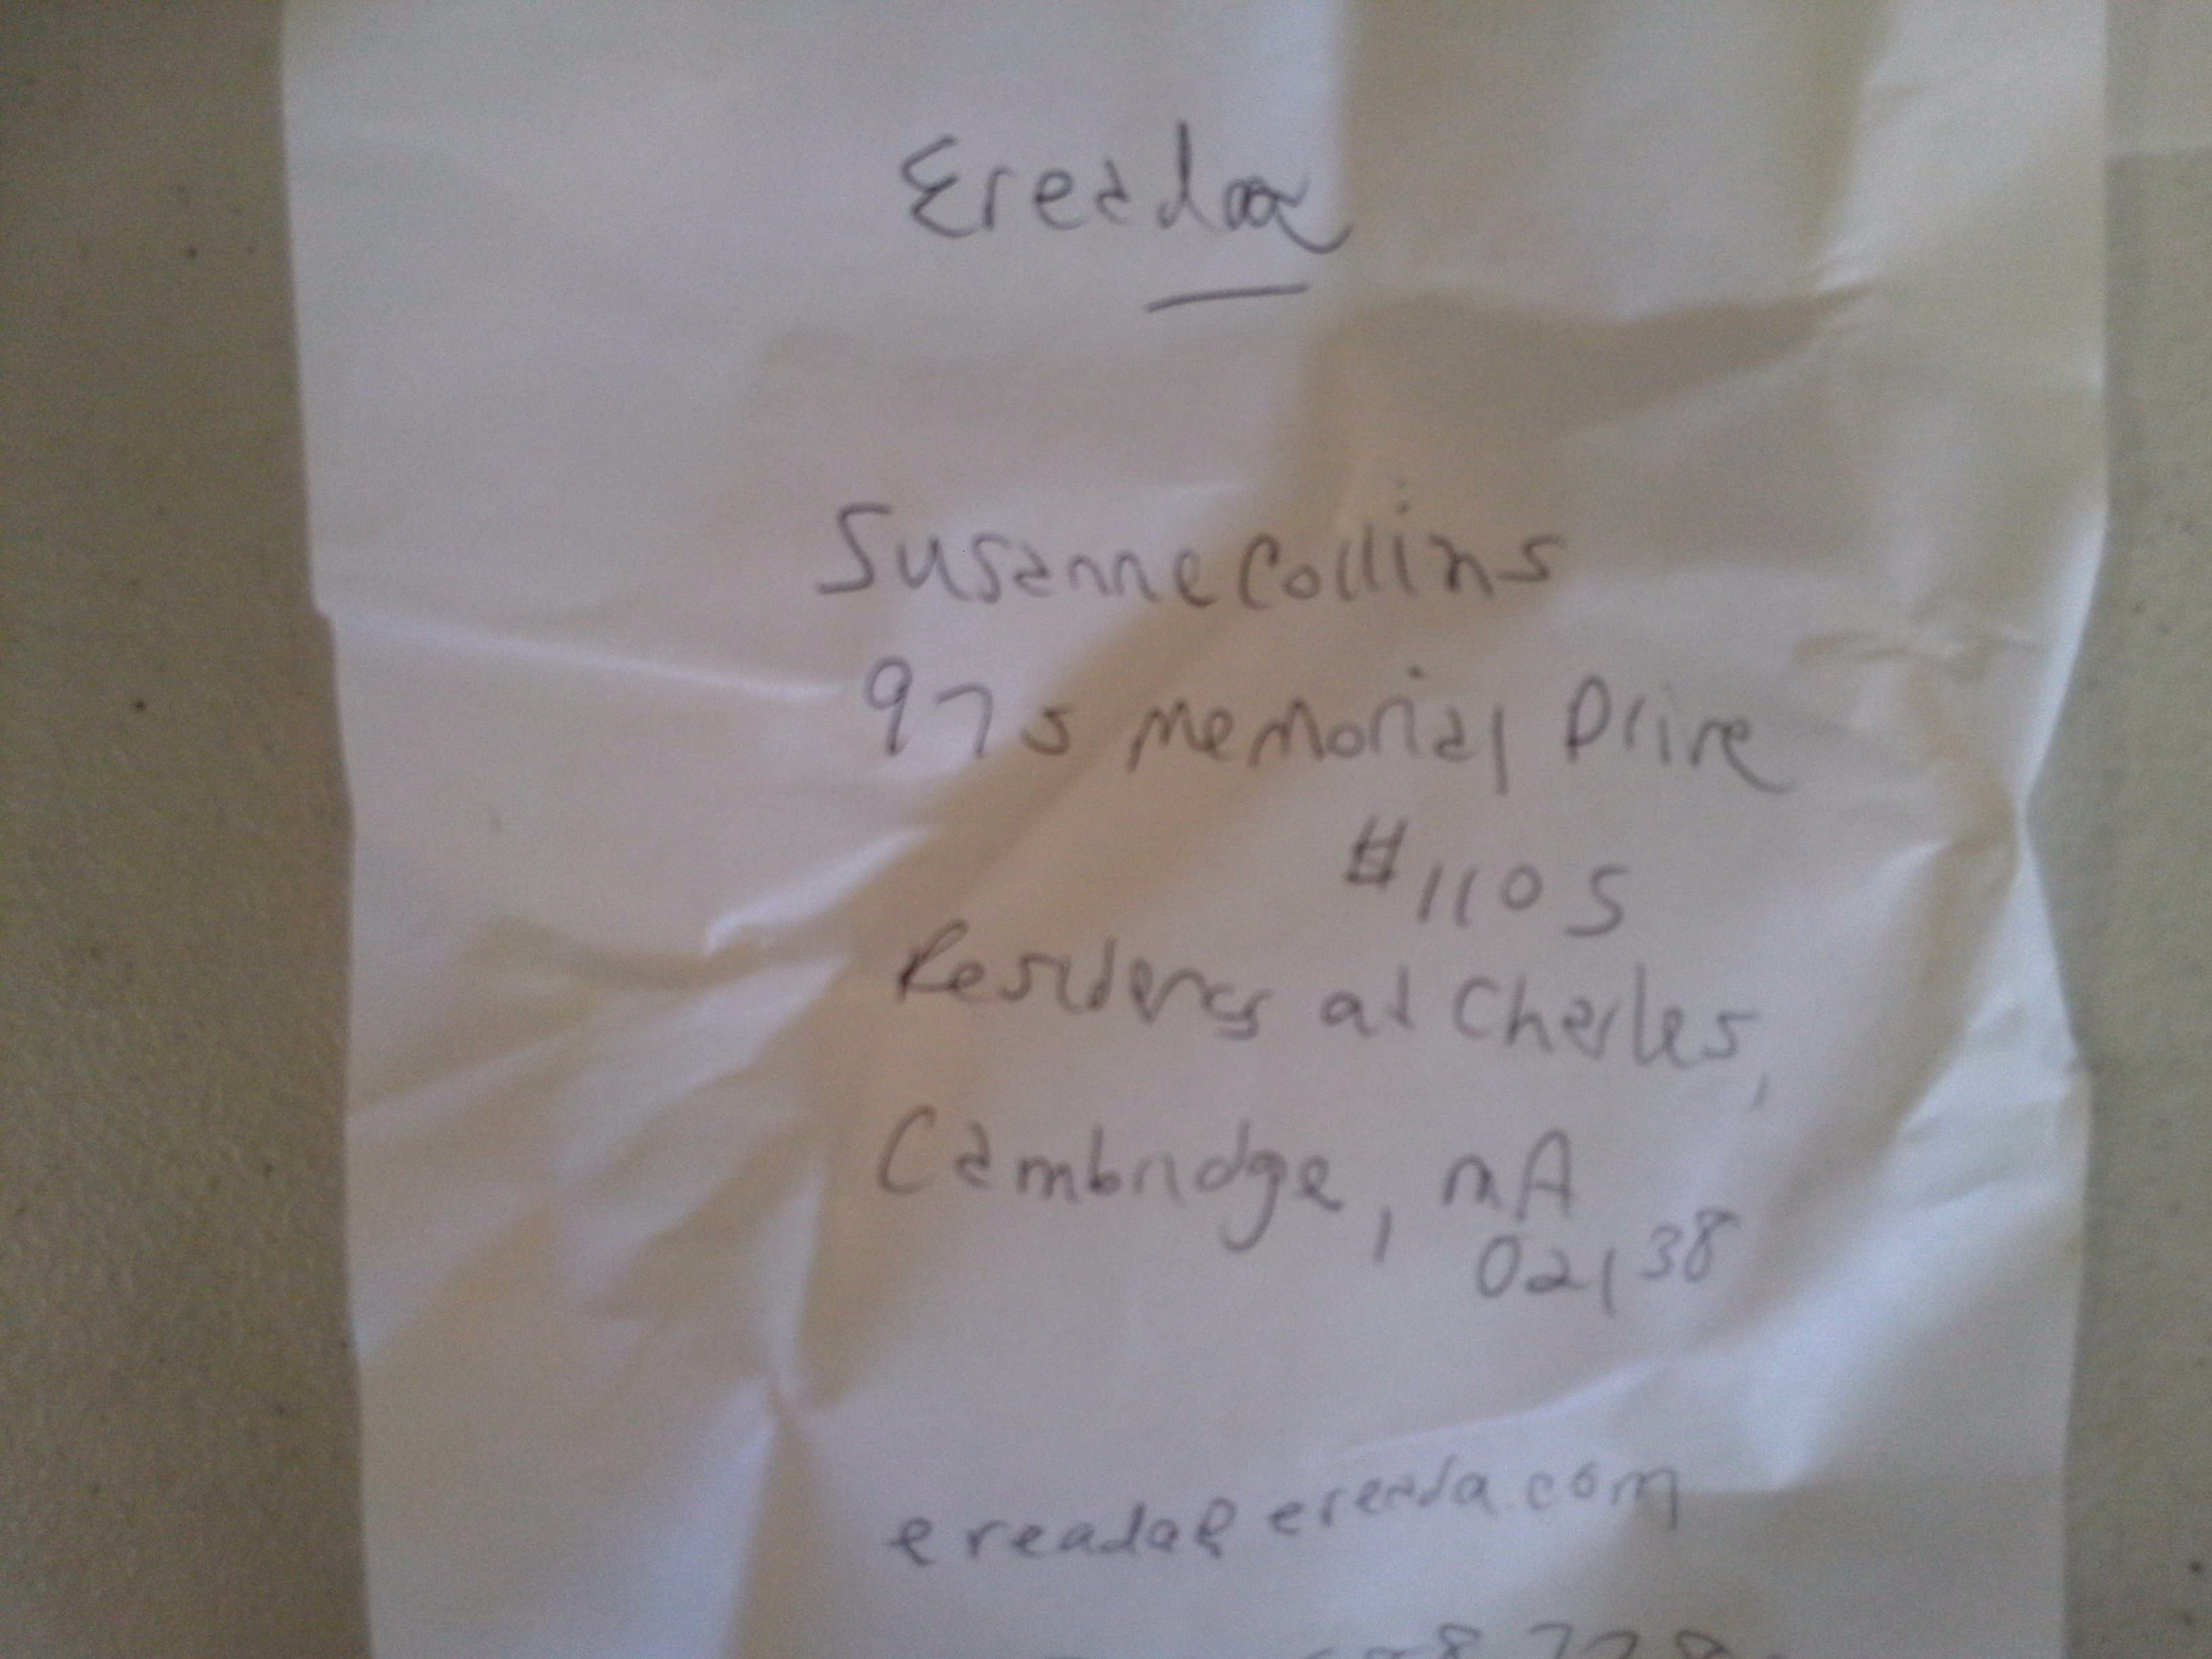 Ereada
Susanne Collins
975 Memorial Drive
#1105
Residences at Charles,
Cambridge, MA
02138
ereada@ereada.com